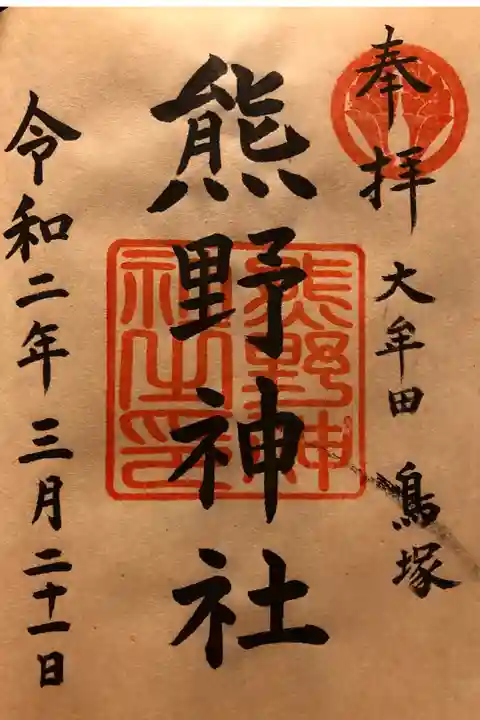 奉拝
大牟田 鳥塚
熊野神社
熊野神
社之印
令和二年三月二十一日